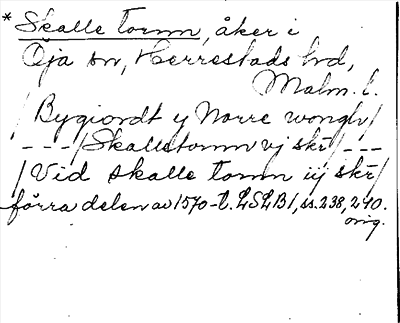 * Skalle tomn, åker i
Öja sn, Herrestads hd,
Malm. l.
/Bygiordt y Norre wongh/
---/Skalletomn vj skr/---
/Vid skalle tomn iij skr/
förra delen av 1570-t. LSLB1, ss. 238, 240.
orig.